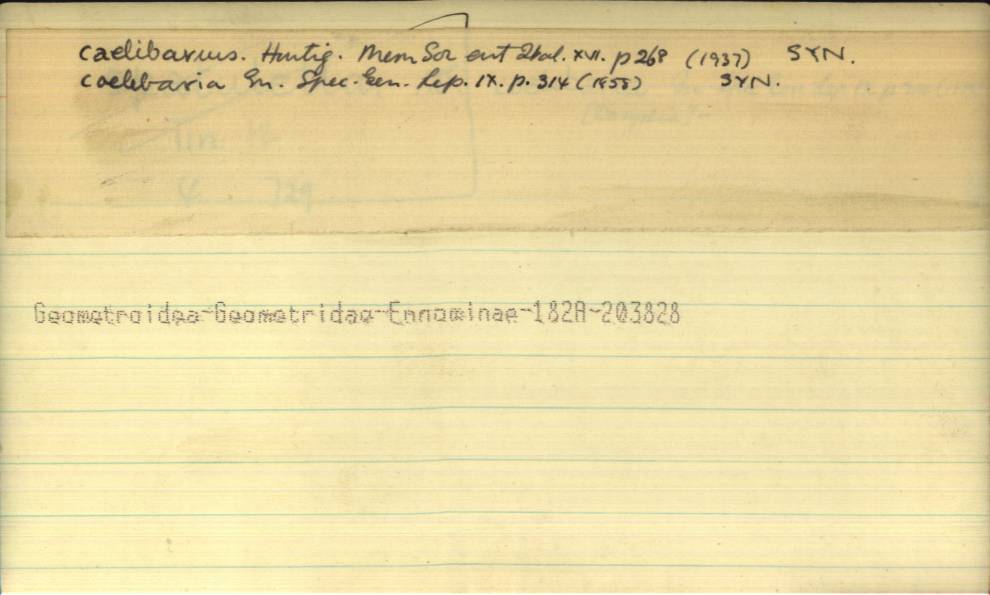 caelibarius. Hartig. Mem Soc ent Ital. XVI. p 268 (1937) SYN.
caelibaria Gn. Spec. Gen. Lep. IX. p. 314 (1858) SYN.
Tin
729
Geometroidea-Geometridae-Ennominae-182A-203828